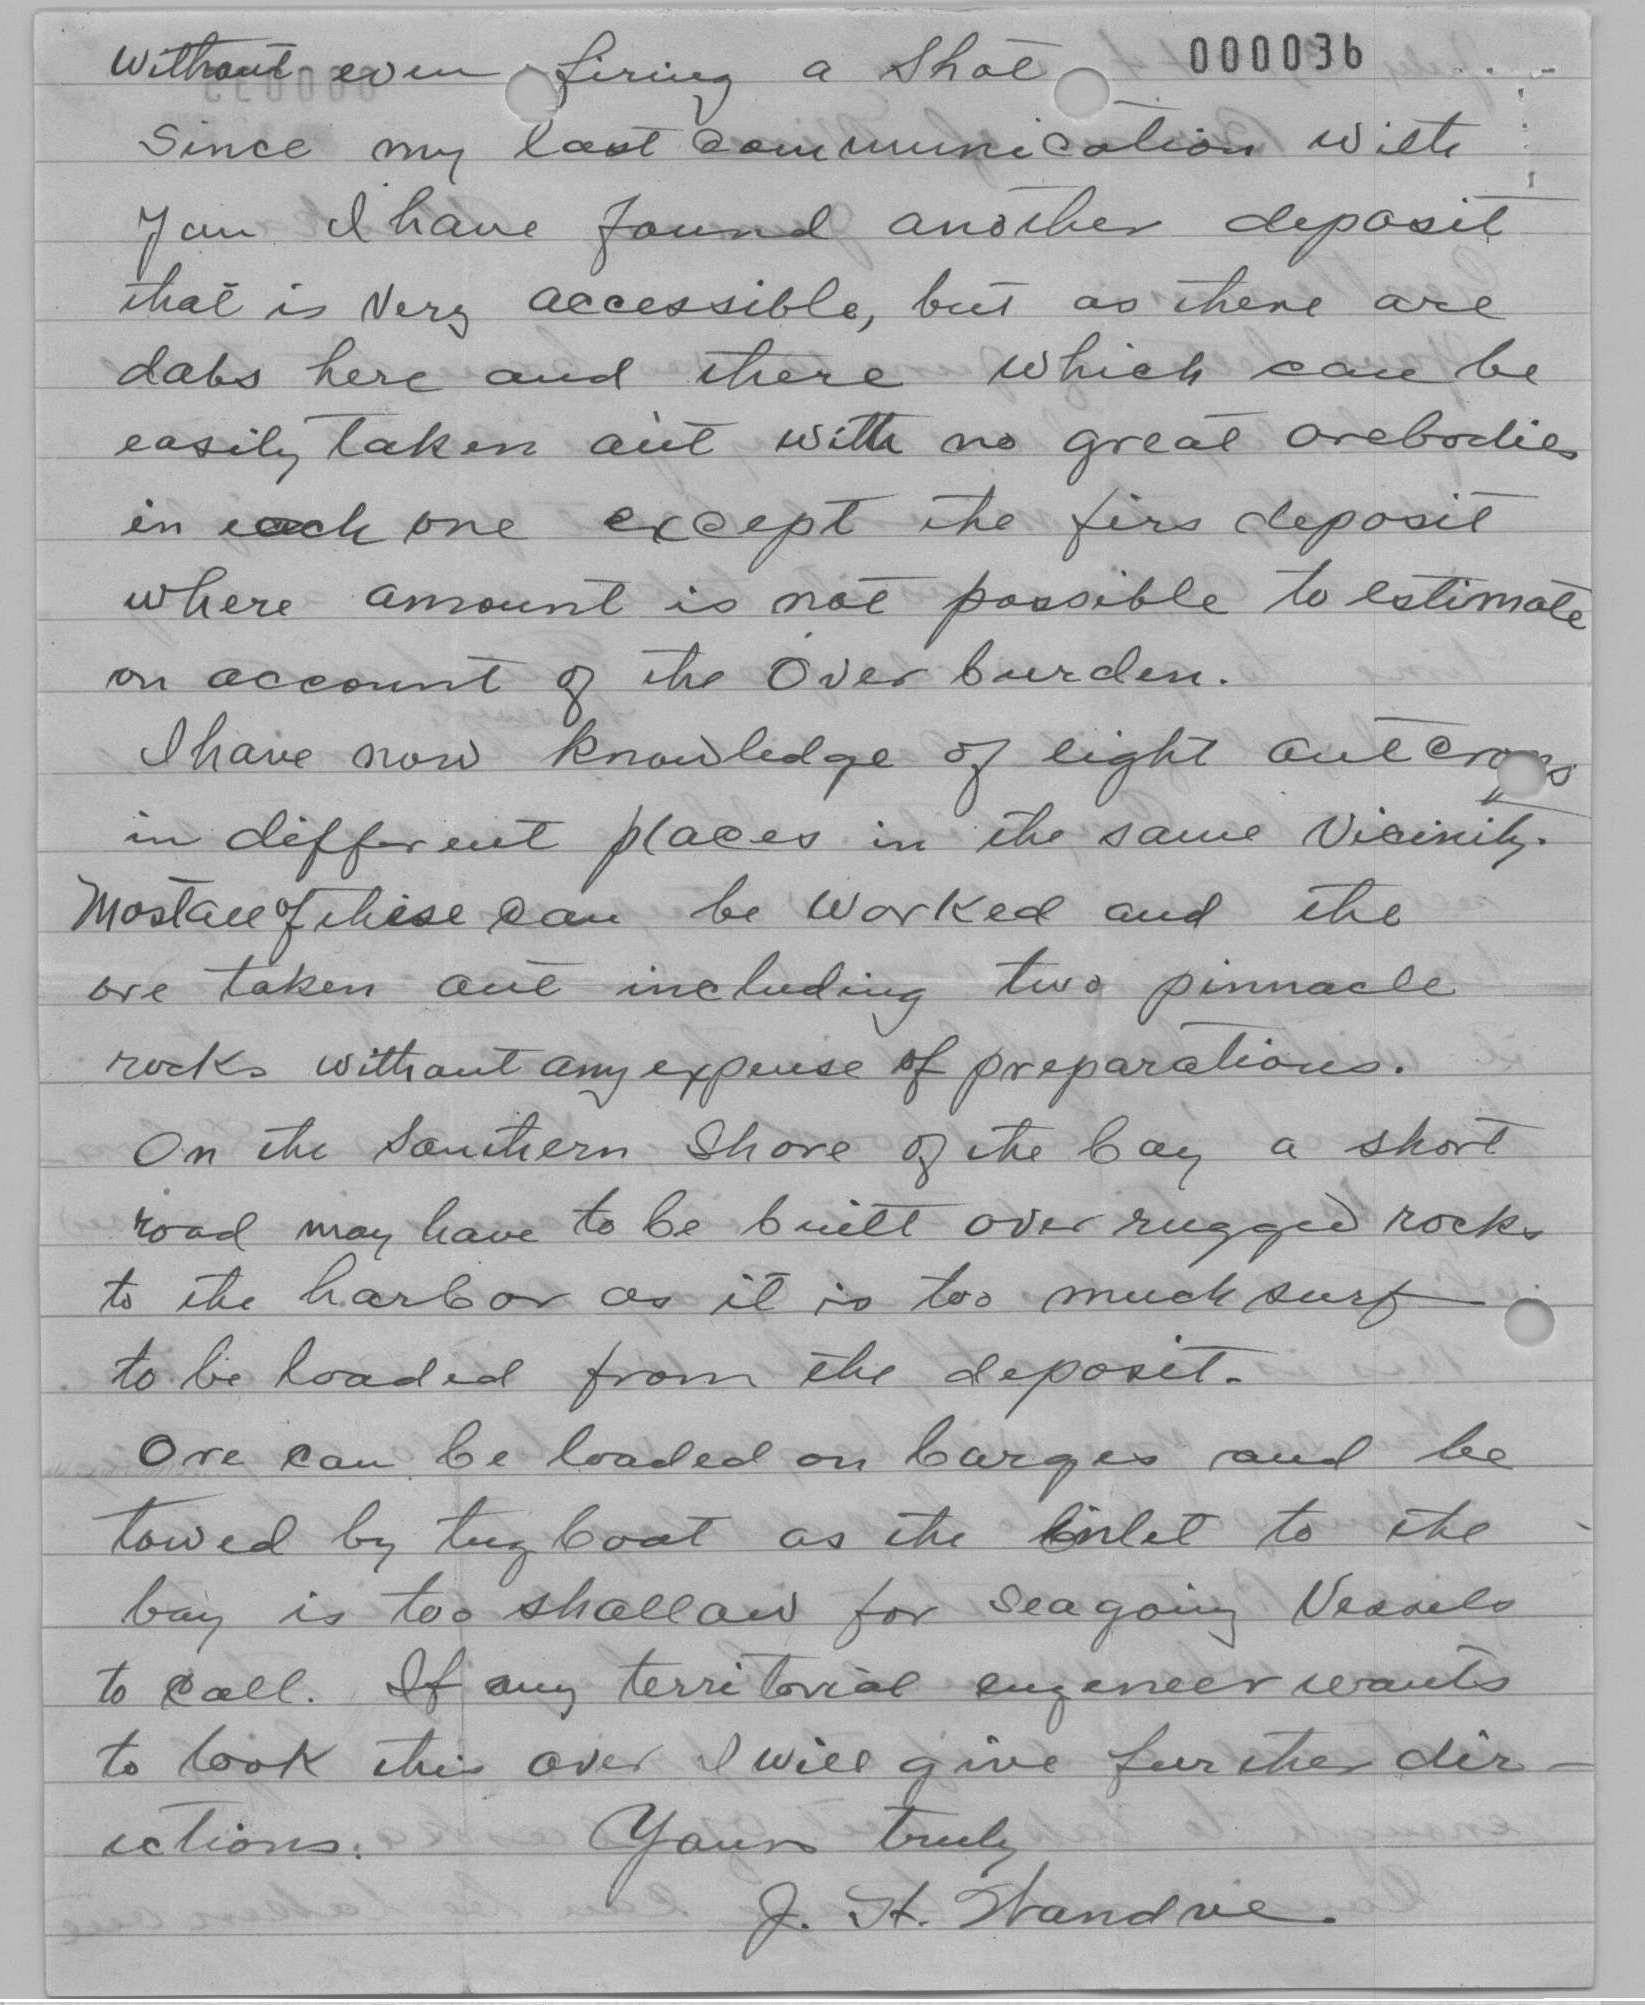 000036
without even firing a shot
Since my last communication with
you I have found another deposit
that is very accessible, but as there are
dabs here and there which can be
easily taken out with no great orebodies
in each one except the firs deposit
where amount is not possible to estimate
on account of the over burden.
I have now knowledge of eight outcrops
in different places in the same vicinity.
Most all of these can be worked and the
ore taken out including two pinnacle
rocks without any expense of preparations.
On the southern shore of the bay a short
road may have to be built over rugged rocks
to the harbor as it is too much surf
to be loaded from the deposit.
Ore can be loaded on barges and be
towed by tug boat as the inlet to the
bay is too shallow for seagoing vessels
to call. If any territorial engeneer wants
to look this over I will give further dir-
ections. Yours truly
J. H. Wandvie.